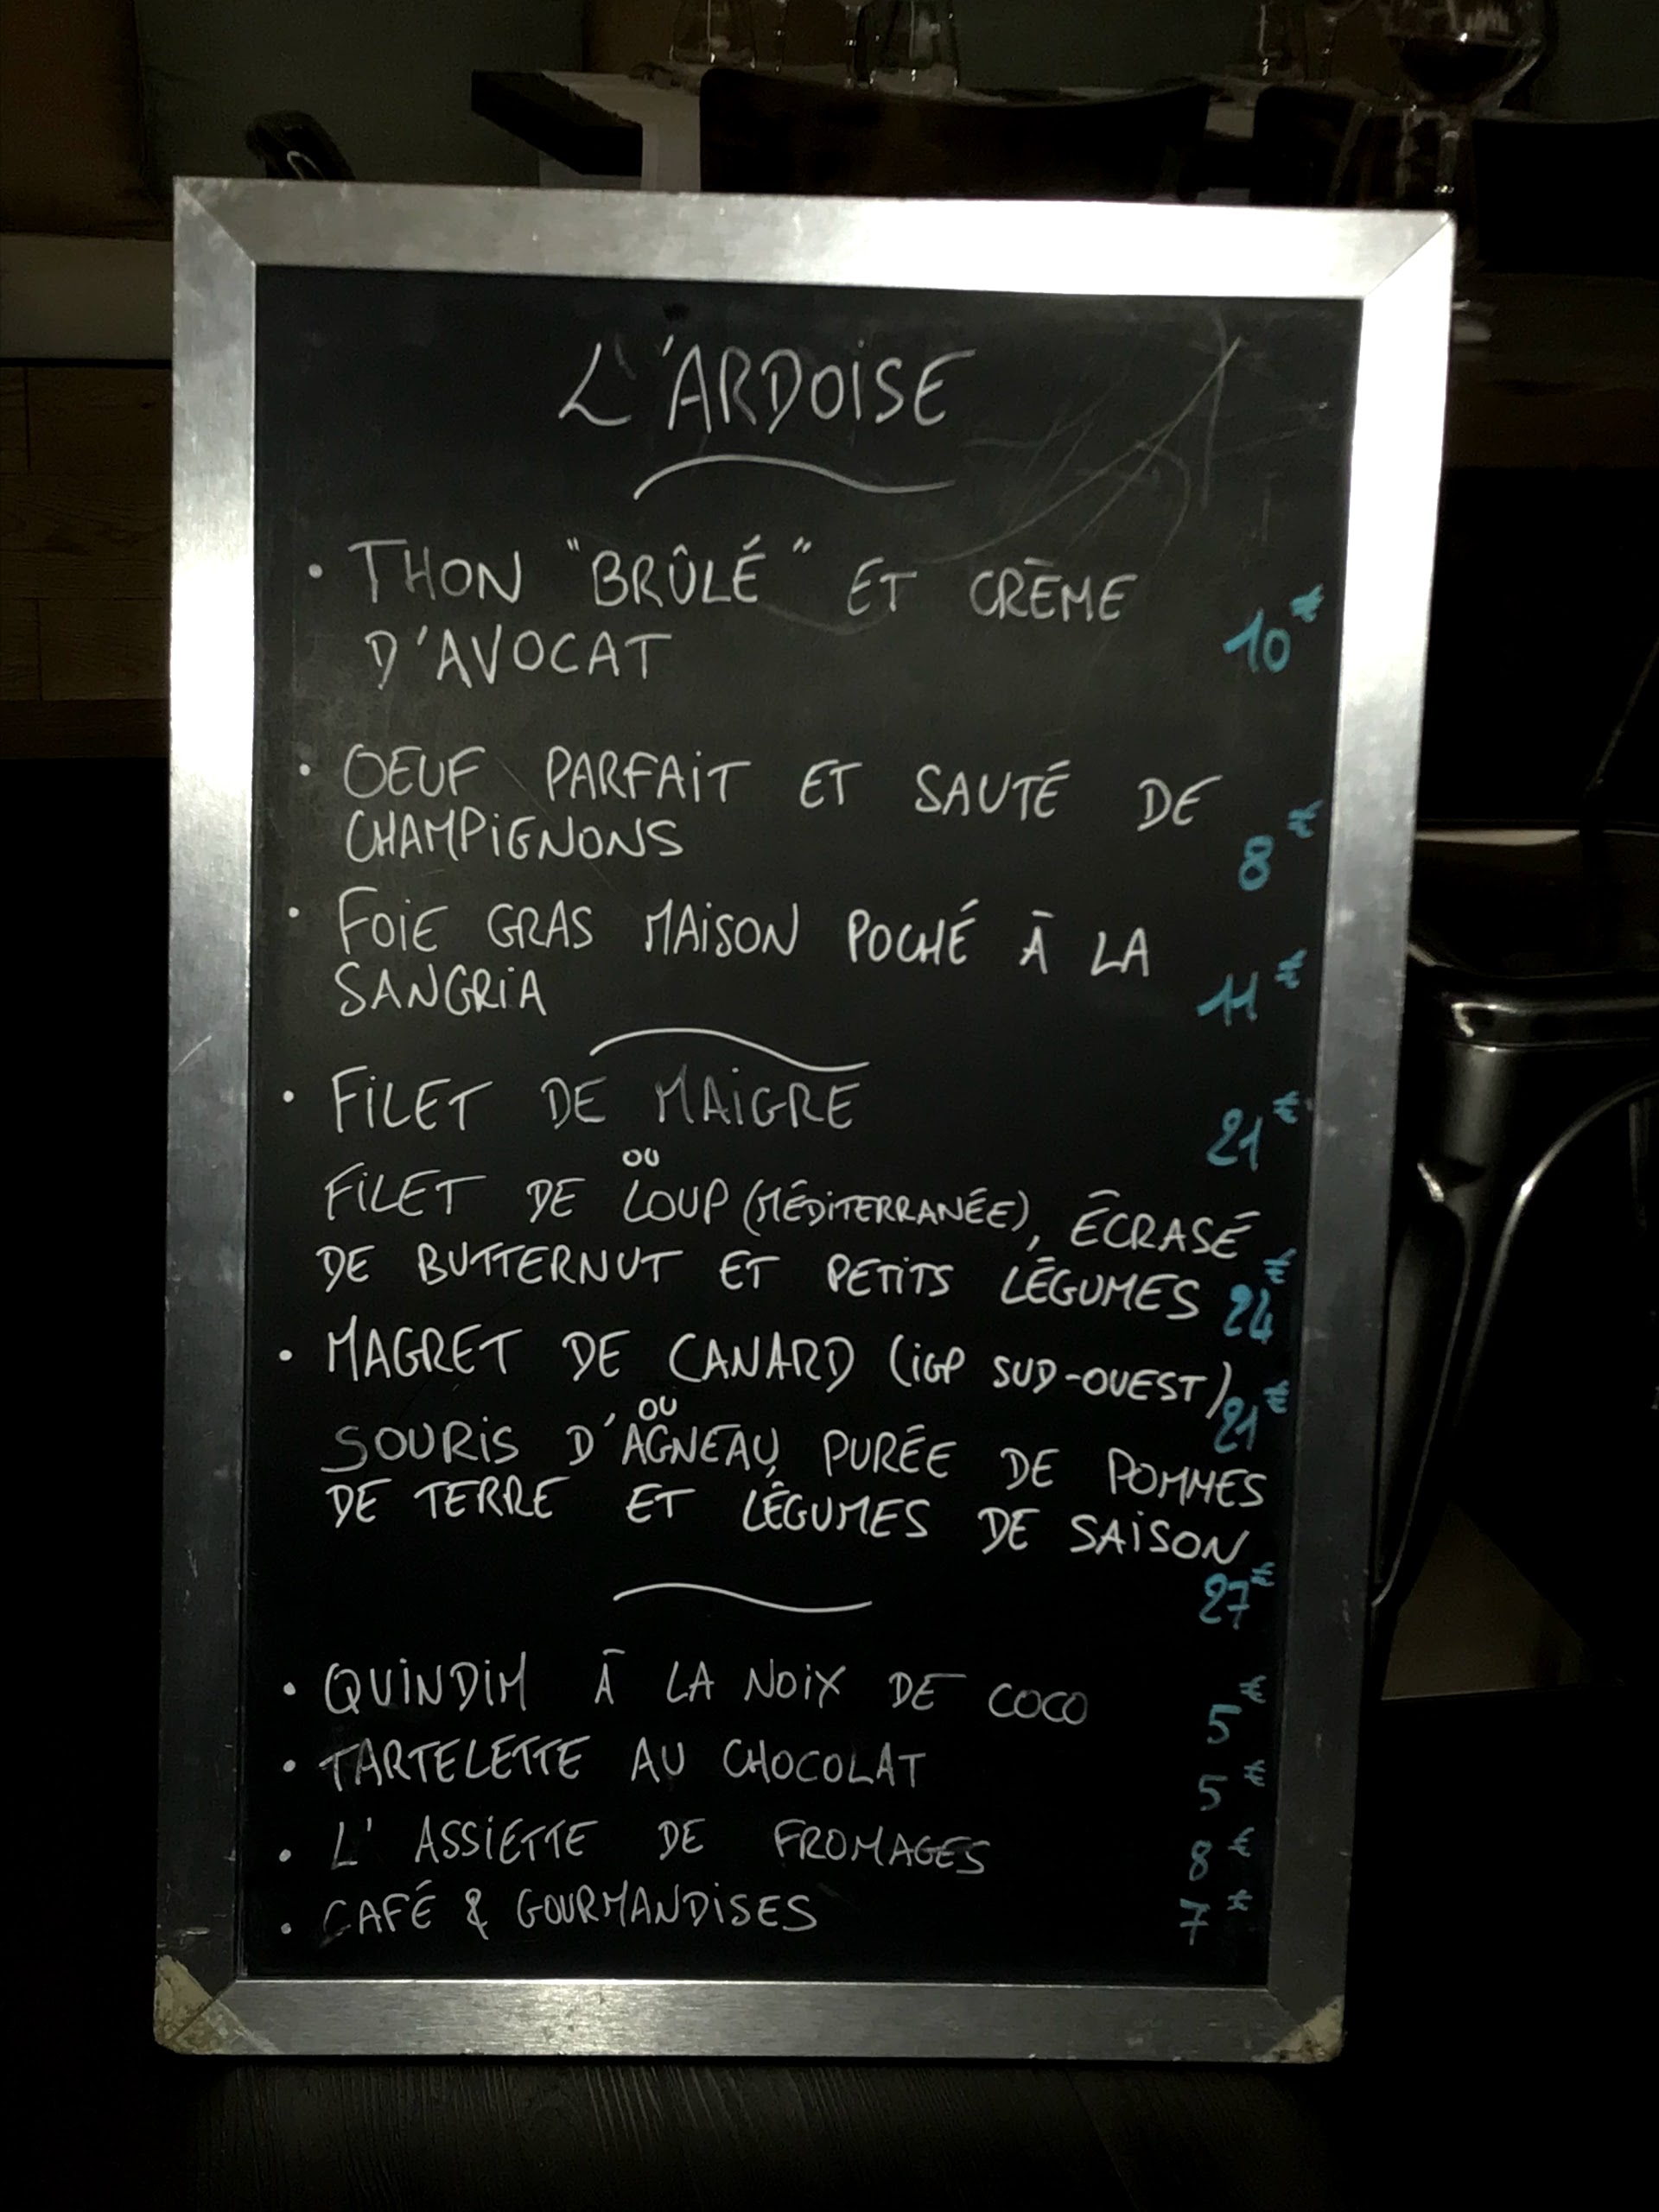 L'ARDOISE
• THON "BRÛLÉ" ET CRÈME
D'AVOCAT 10€
• OEUF PARFAIT ET SAUTÉ DE
CHAMPIGNONS 8€
• FOIE GRAS MAISON POCHÉ À LA
SANGRIA 11€
• FILET DE MAIGRE 21€
OU
FILET DE LOUP (MÉDITERRANÉE), ÉCRASÉ
DE BUTTERNUT ET PETITS LÉGUMES 24€
• MAGRET DE CANARD (IGP SUD-OUEST) 21€
OU
SOURIS D'AGNEAU, PURÉE DE POMMES
DE TERRE ET LÉGUMES DE SAISON
27€
• QUINDIM À LA NOIX DE COCO 5€
• TARTELETTE AU CHOCOLAT 5€
• L'ASSIETTE DE FROMAGES 8€
• CAFÉ & GOURMANDISES 7€